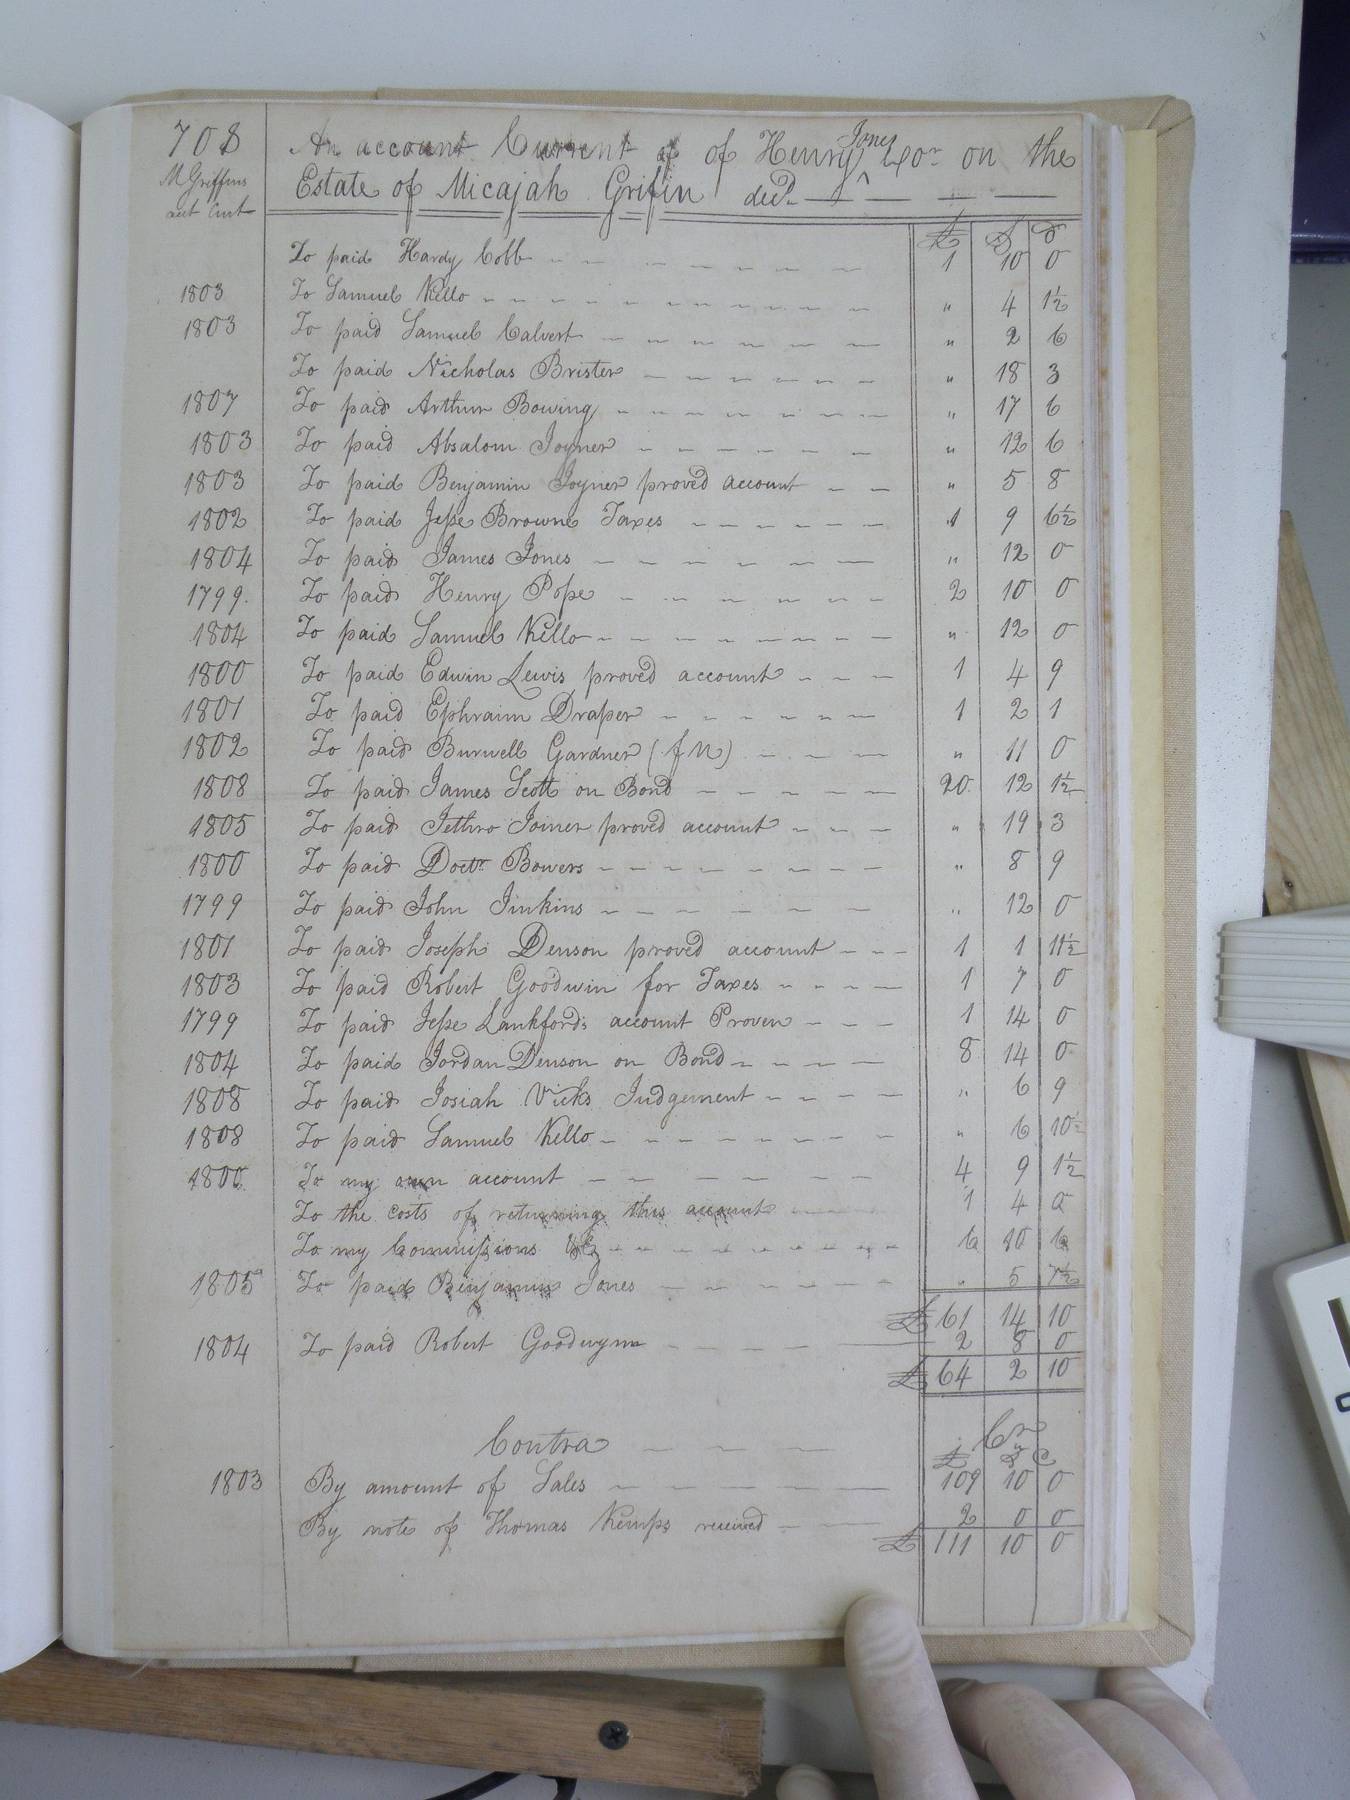 708
M Griffins
acct Curt
An account Current of of Henry Jones Exor on the
Estate of Micajah Grifin decd
£ S D
To paid Hardy Cobb 1 10 0
1803 To Samuel Kello " 4 1½
1803 To paid Samuel Calvert " 2 6
To paid Nicholas Brister " 18 3
1807 To paid Arthur Bowing " 17 6
1803 To paid Absalom Joyner " 12 6
1803 To paid Benjamin Joyner proved account " 5 8
1802 To paid Jesse Browne Taxes 1 9 6½
1804 To paid James Jones " 12 0
1799. To paid Henry Pope 2 10 0
1804 To paid Samuel Kello " 12 0
1800 To paid Edwin Lewis proved account 1 4 9
1801 To paid Ephraim Draper 1 2 1
1802 To paid Burwell Gardner (f N) " 11 0
1808 To paid James Scott on Bond 20 12 1½
1805 To paid Jethro Joiner proved account " 19 3
1800 To paid Doctr Bowers " 8 9
1799 To paid John Jinkins " 12 0
1801 To paid Joseph Denson proved account 1 1 11½
1803 To paid Robert Goodwin for Taxes 1 7 0
1799 To paid Jesse Lankfords account Proven 1 14 0
1804 To paid Jordan Denson on Bond 8 14 0
1808 To paid Josiah Vicks Judgement " 6 9
1808 To paid Samuel Kello " 6 10½
1800 To my own account 4 9 1½
To the costs of returning this account 1 4 0
To my Commissions 6 10 6
1805 To paid Benjamin Jones " 5 7½
£ 61 14 10
1804 To paid Robert Goodwynn 2 8 0
£ 64 2 10
Contra Cr
£ S D
1803 By amount of Sales 109 10 0
By note of Thomas Kemps received 2 0 0
£ 111 10 0